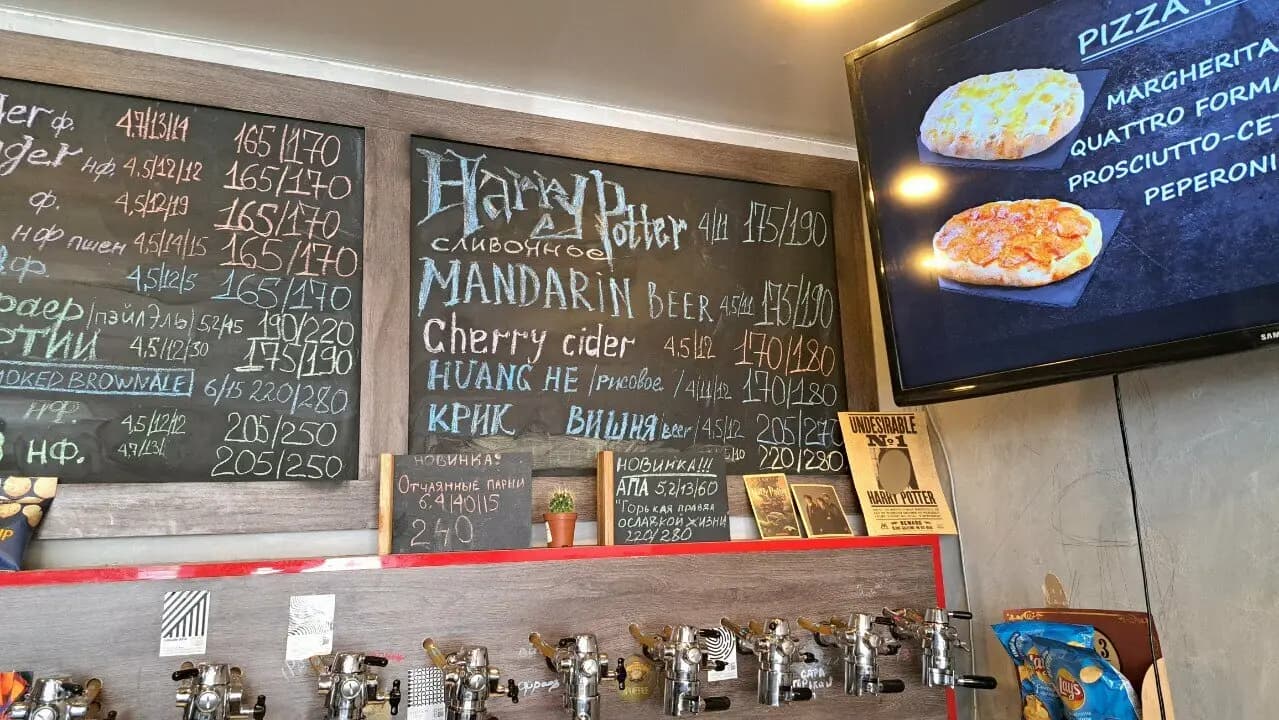 ф. 4,7/13/14 165/170
нф. 4,5/12/12 165/170
ф. 4,5/12/19 165/170
нф пшен 4,5/14/15 165/170
ф. 4,5/12/5 165/170
/пэйл эль/ 5,2/15 190/220
4,5/12/30 175/190
SMOKED BROWN ALE 6/15 220/280
нф. 4,5/12/12 205/250
нф. 4,7/13/ 205/250
Harry Potter 4/11 175/190
сливочное
MANDARiN BEER 4,5/11 175/190
Cherry cider 4.5/12 170/180
HUANG HE /рисовое/ 4/11/12 170/180
КРИК ВИШНЯ beer 4,5/12 205/270
220/280
НОВИНКА!
Отчаянные парни
6.4/40/15
240
НОВИНКА!!!
АПА 5,2/13/60
"Горькая правда
о сладкой жизни
220/280
UNDESIRABLE
No 1
HARRY POTTER
BEWARE
PIZZA
MARGHERITA
QUATTRO FORMA
PROSCIUTTO-
PEPERONI
SAMS
Lay's
3